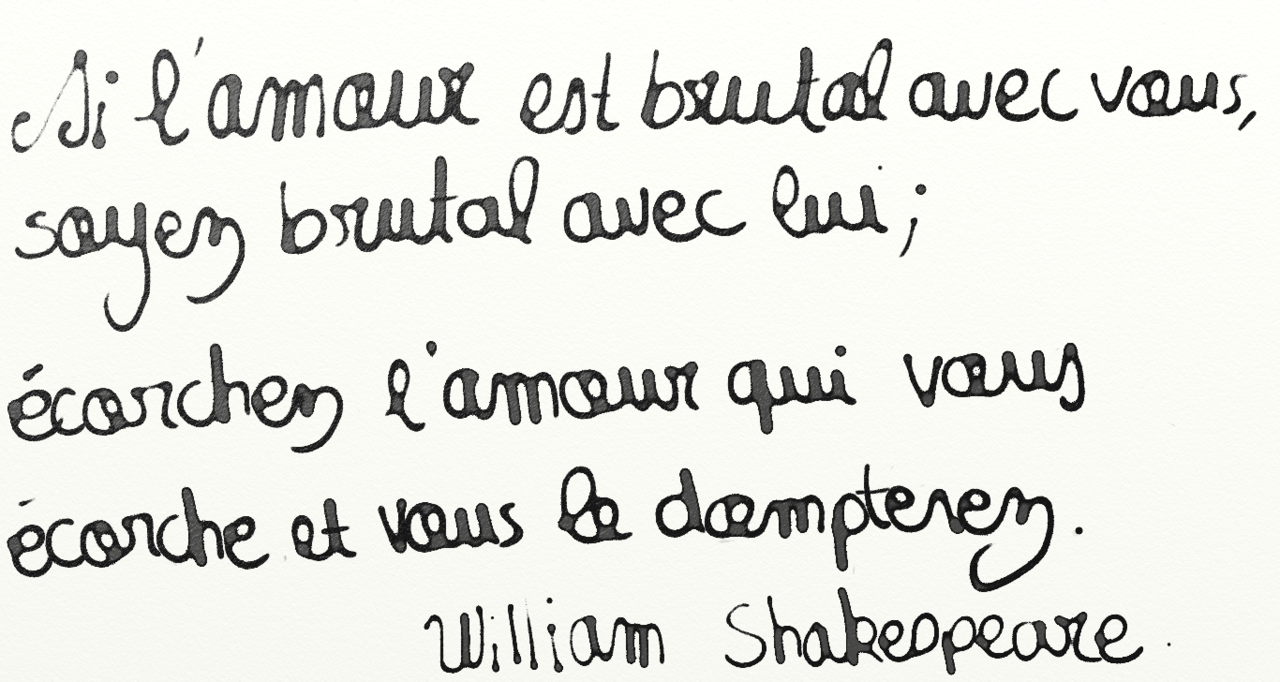 Si l'amour est brutal avec vous,
soyez brutal avec lui ;
écorchez l'amour qui vous
écorche et vous le dompterez.
William Shakespeare.